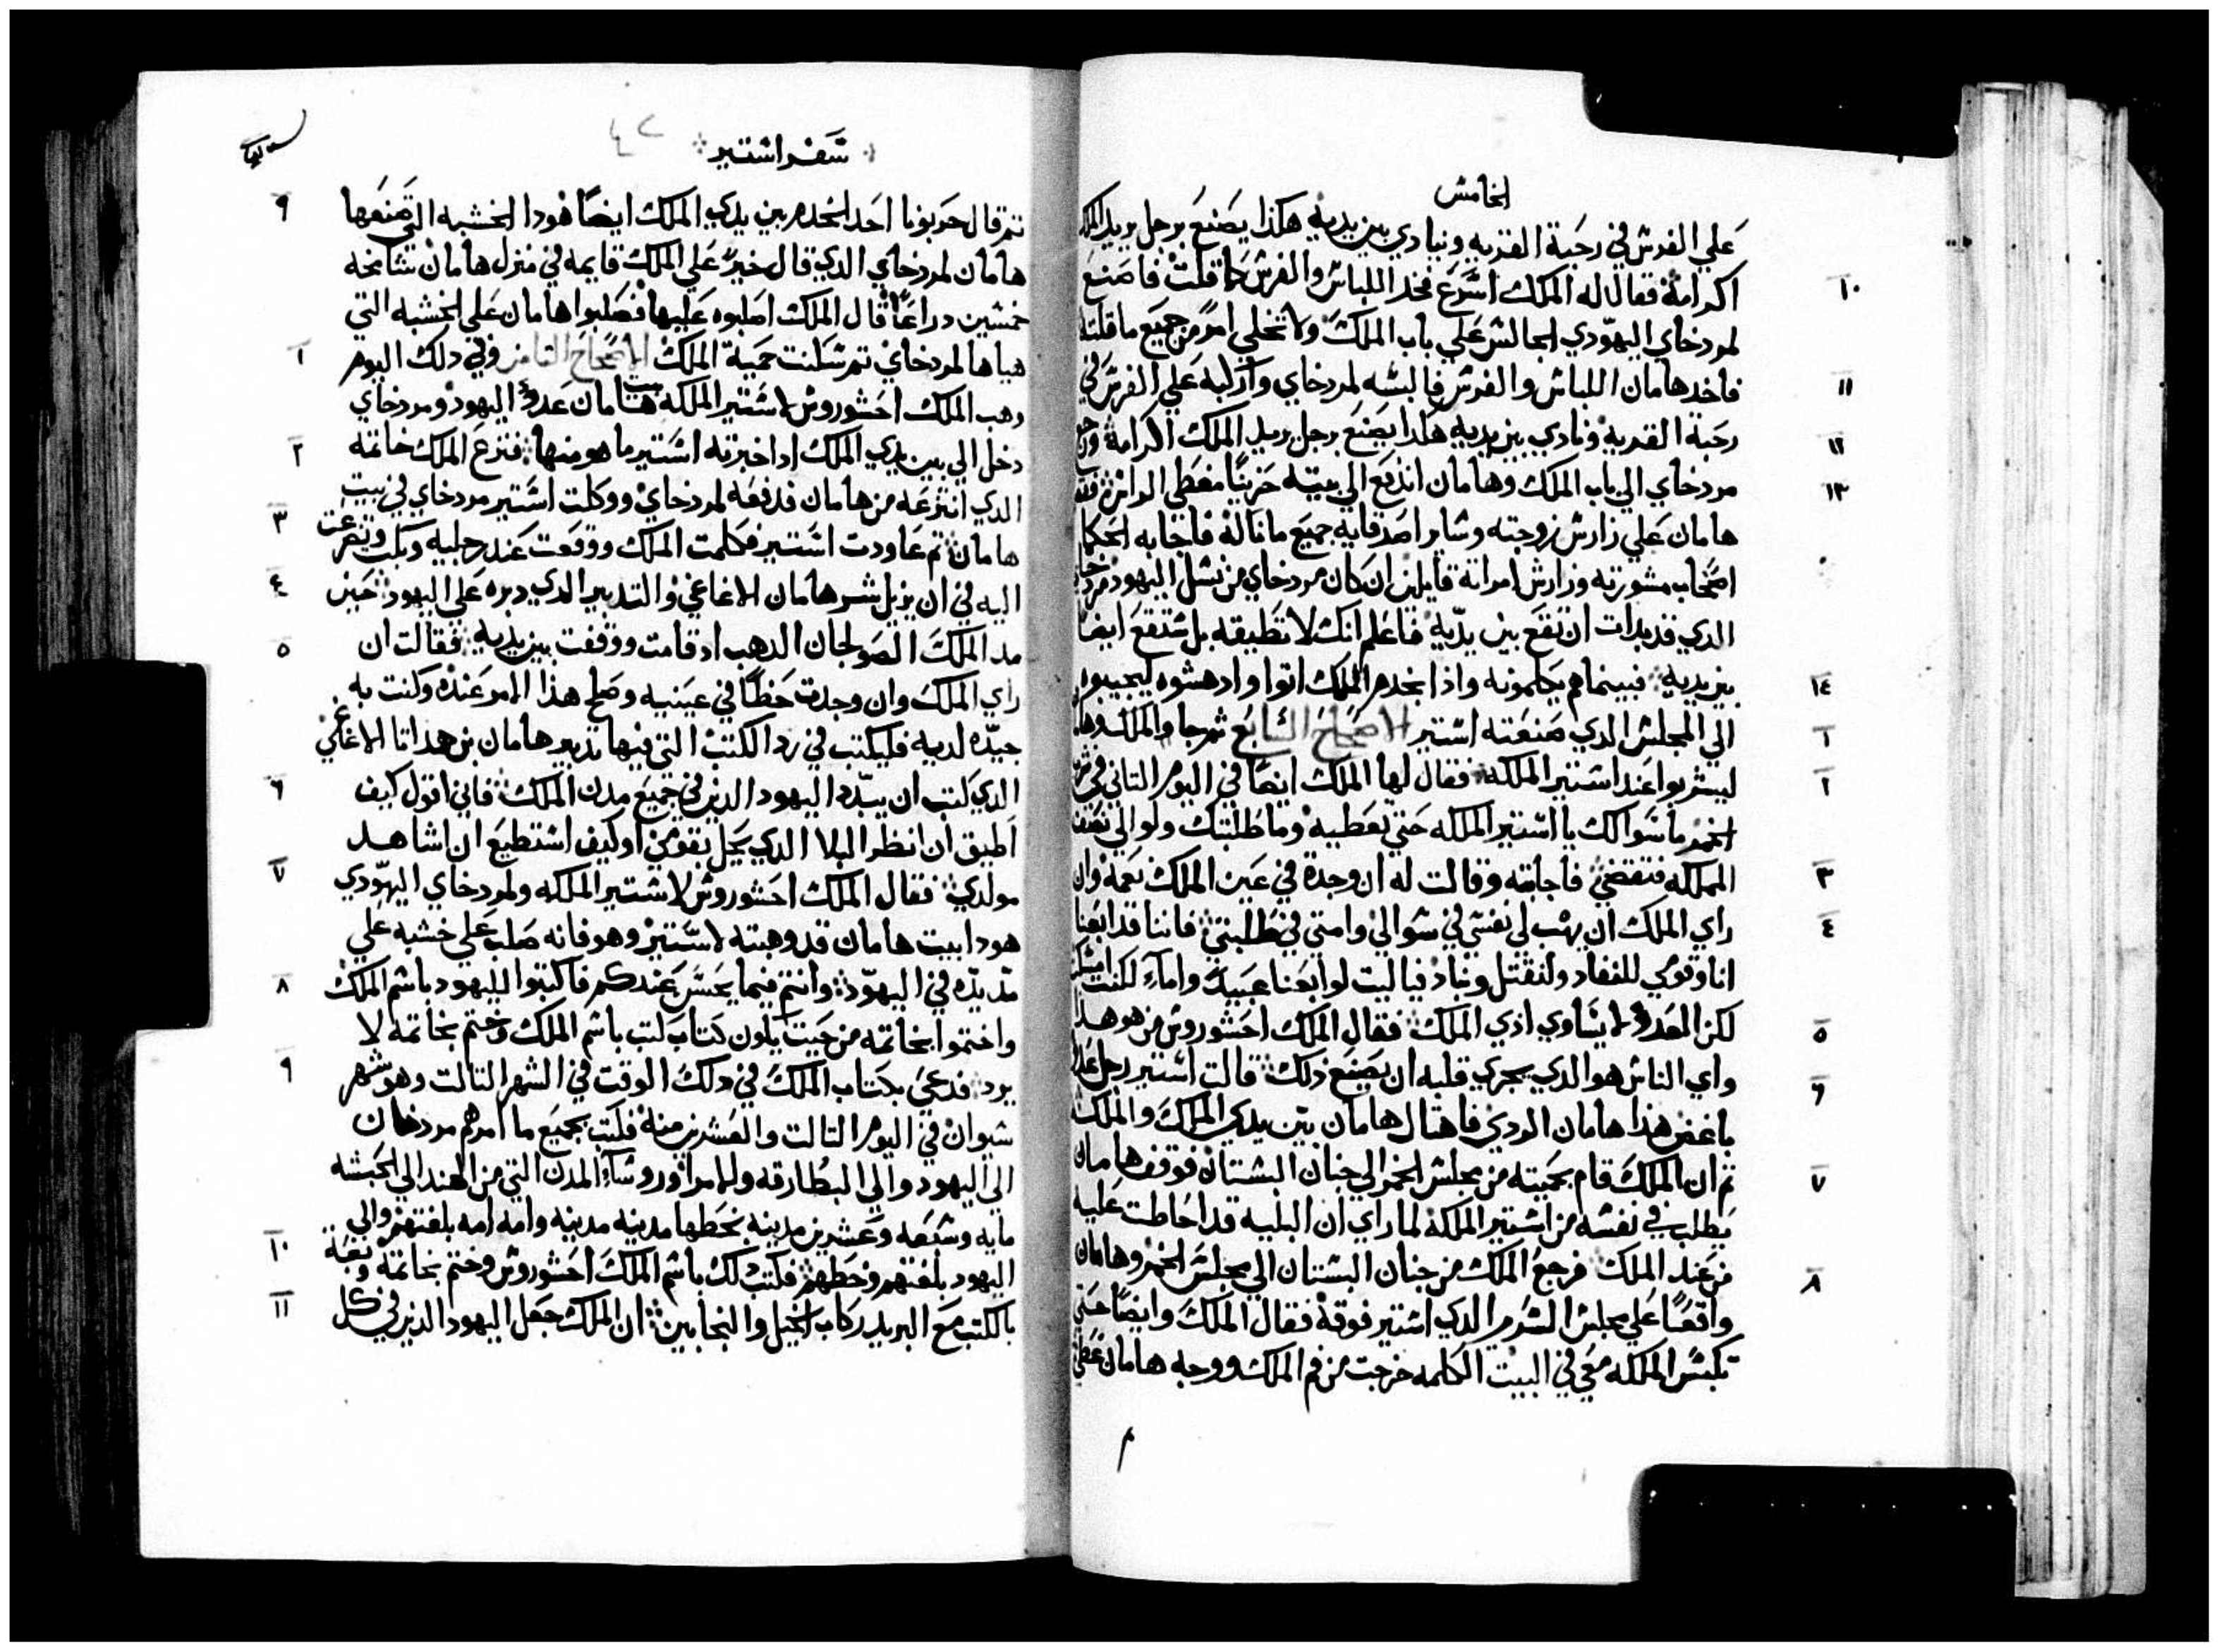 الخامش
علي الفرش في رحبة القريه وينادي بين يديه هكذا يصنع برجل يريد الملك
اكرامة فقال له الملك اشرع فخد اللباش والفرش كما قلت فاصنع
لمردخاي اليهودي الجالش علي باب الملك ولا تخلي امرًا من جميع ما قلته
فاخد هامان اللباش والفرش فالبشه لمردخاي واركبه علي الفرش في
رحبة القريه ونادي بين يديه هكدا يصنع برجل يريد الملك اكرامة
مردخاي الي باب الملك وهامان اندفع الي بيته حزينًا مغطي الراش
هامان علي زارش زوجته وشاير اصدقايه جميع ما نالة فاجابه الحكما
اصحاب مشورته وزارش امراتة قايلين ان كان مردخاي من نشل اليهود
الدي قد بدات ان تقع بين يديه فاعلم انك لا تطيقه بل شتقع ايضًا
بين يديه فبينما هم يكلمونه واذا بخدم الملك اتوا وادهشوه ليجيبوه
الي المجلش الدي صنعته اشتير الاصحاح الشابع ثم جا الملك وهامان
ليشربوا عند اشتير الملكه فقال لها الملك ايضًا في اليوم التاني في
الخمر ما شوالك يا اشتير الملكه حتي نعطيه وما طلبتك ولو الي نصف
المملكه فتقضي فاجابته وقالت له ان وجدة في عين الملك نعمة وان
راي الملك ان يهب لي نفشي في شوالي وامتي في طلبتي فاننا قد ابعنا
انا وقومي للنفاد ولنقتل ونباد فيا ليت لو ابعنا عبيدًا واماءً لكنت
لكن العدو لا يشاوي ادي الملك فقال الملك احشوروش من هو هدا
واي الناش هو الدي يجري قلبه ان يصنع ذلك قالت اشتير رجل عدو
باغض هذا هامان الردي فاهتال هامان بين يدي الملك والملكه
تم ان الملك قام بحميته من مجلش الخمر الي جنان البشتان فوقف هامان
يطلب في نفشه من اشتير الملكة لما راي ان البلية قد احاطت عليه
من عند الملك فرجع الملك من جنان البشتان الي مجلش الخمر وهامان
واقعًا علي مجلش الشرير الدي اشتير فوقة فقال الملك وايضًا حتي
تكبش الملكه معي في البيت الكلمه خرجت من فم الملك ووجه هامان
شفر اشتير
تم قال حربونا احد الخدم بين يدي الملك ايضًا هودا الخشبه التي صنعها
هامان لمردخاي الدي قال خيرًا علي الملك قايمه في منزل هامان شامخه
خمشين دراعًا قال الملك اصلبوه عليها فصلبوا هامان علي الخشبه التي
هياها لمردخاي تم شكنت حمية الملك الاصحاح التامن وفي دلك اليوم
وهب الملك احشوروش لاشتير الملكه بيت هامان عدو اليهود ومردخاي
دخل الي بين يدي الملك اد اخبرته اشتير ما هو منها فنزع الملك خاتمه
الدي انتزعه من هامان فدفعه لمردخاي ووكلت اشتير مردخاي في بيت
هامان تم عاودت اشتير فكلمت الملك ووقعت عند رجليه وبكت وتضرعت
اليه في ان يزيل شر هامان الاغاغي والتدبير الدي دبره علي اليهود حين
مد الملك الصولجان الدهب اد قامت ووقفت بين يديه فقالت ان
راي الملك وان وجدت حظًا في عينيه وصلح هذا الامر عنده وكنت به
جيده لديه فليكتب في رد الكتب التي فيها تدبير هامان بن همداتا الاغاغي
الدي كتب ان يبدد اليهود الدين في جميع مدن الملك فاني اقول كيف
اطيق ان انظر البلا الدي يحل بقومي او كيف اشتطيع ان اشاهد
مولدي فقال الملك احشوروش لاشتير الملكه ولمردخاي اليهودي
هودا بيت هامان قد وهبته لاشتير وهو فانه صلب علي خشبه علي
مد يده في اليهود وانتم فيما يحشن عندكم فاكتبوا لليهود باشم الملك
واختموا بخاتمه من حيت يكون كتاب كتب باشم الملك وختم بخاتمه لا
يرد فدعي بكتاب الملك في دلك الوقت في الشهر التالت وهو شهر
شيوان في اليوم التالت والعشرين منه فكتب بجميع ما امرهم مردخاي
الي اليهود والي البطارقه وللامرا وروشاء المدن التي من الهند الي الحبشه
مايه وشبعه وعشرين مدينه بخطها مدينه مدينه وامه امه بلغتهم والي
اليهود بلغتهم وخطهم فكتب دلك باشم الملك احشوروش وختم بخاتمه وبعت
بالكتب مع البريد ركاب الخيل والنجابين ان الملك جعل اليهود الدين في كل